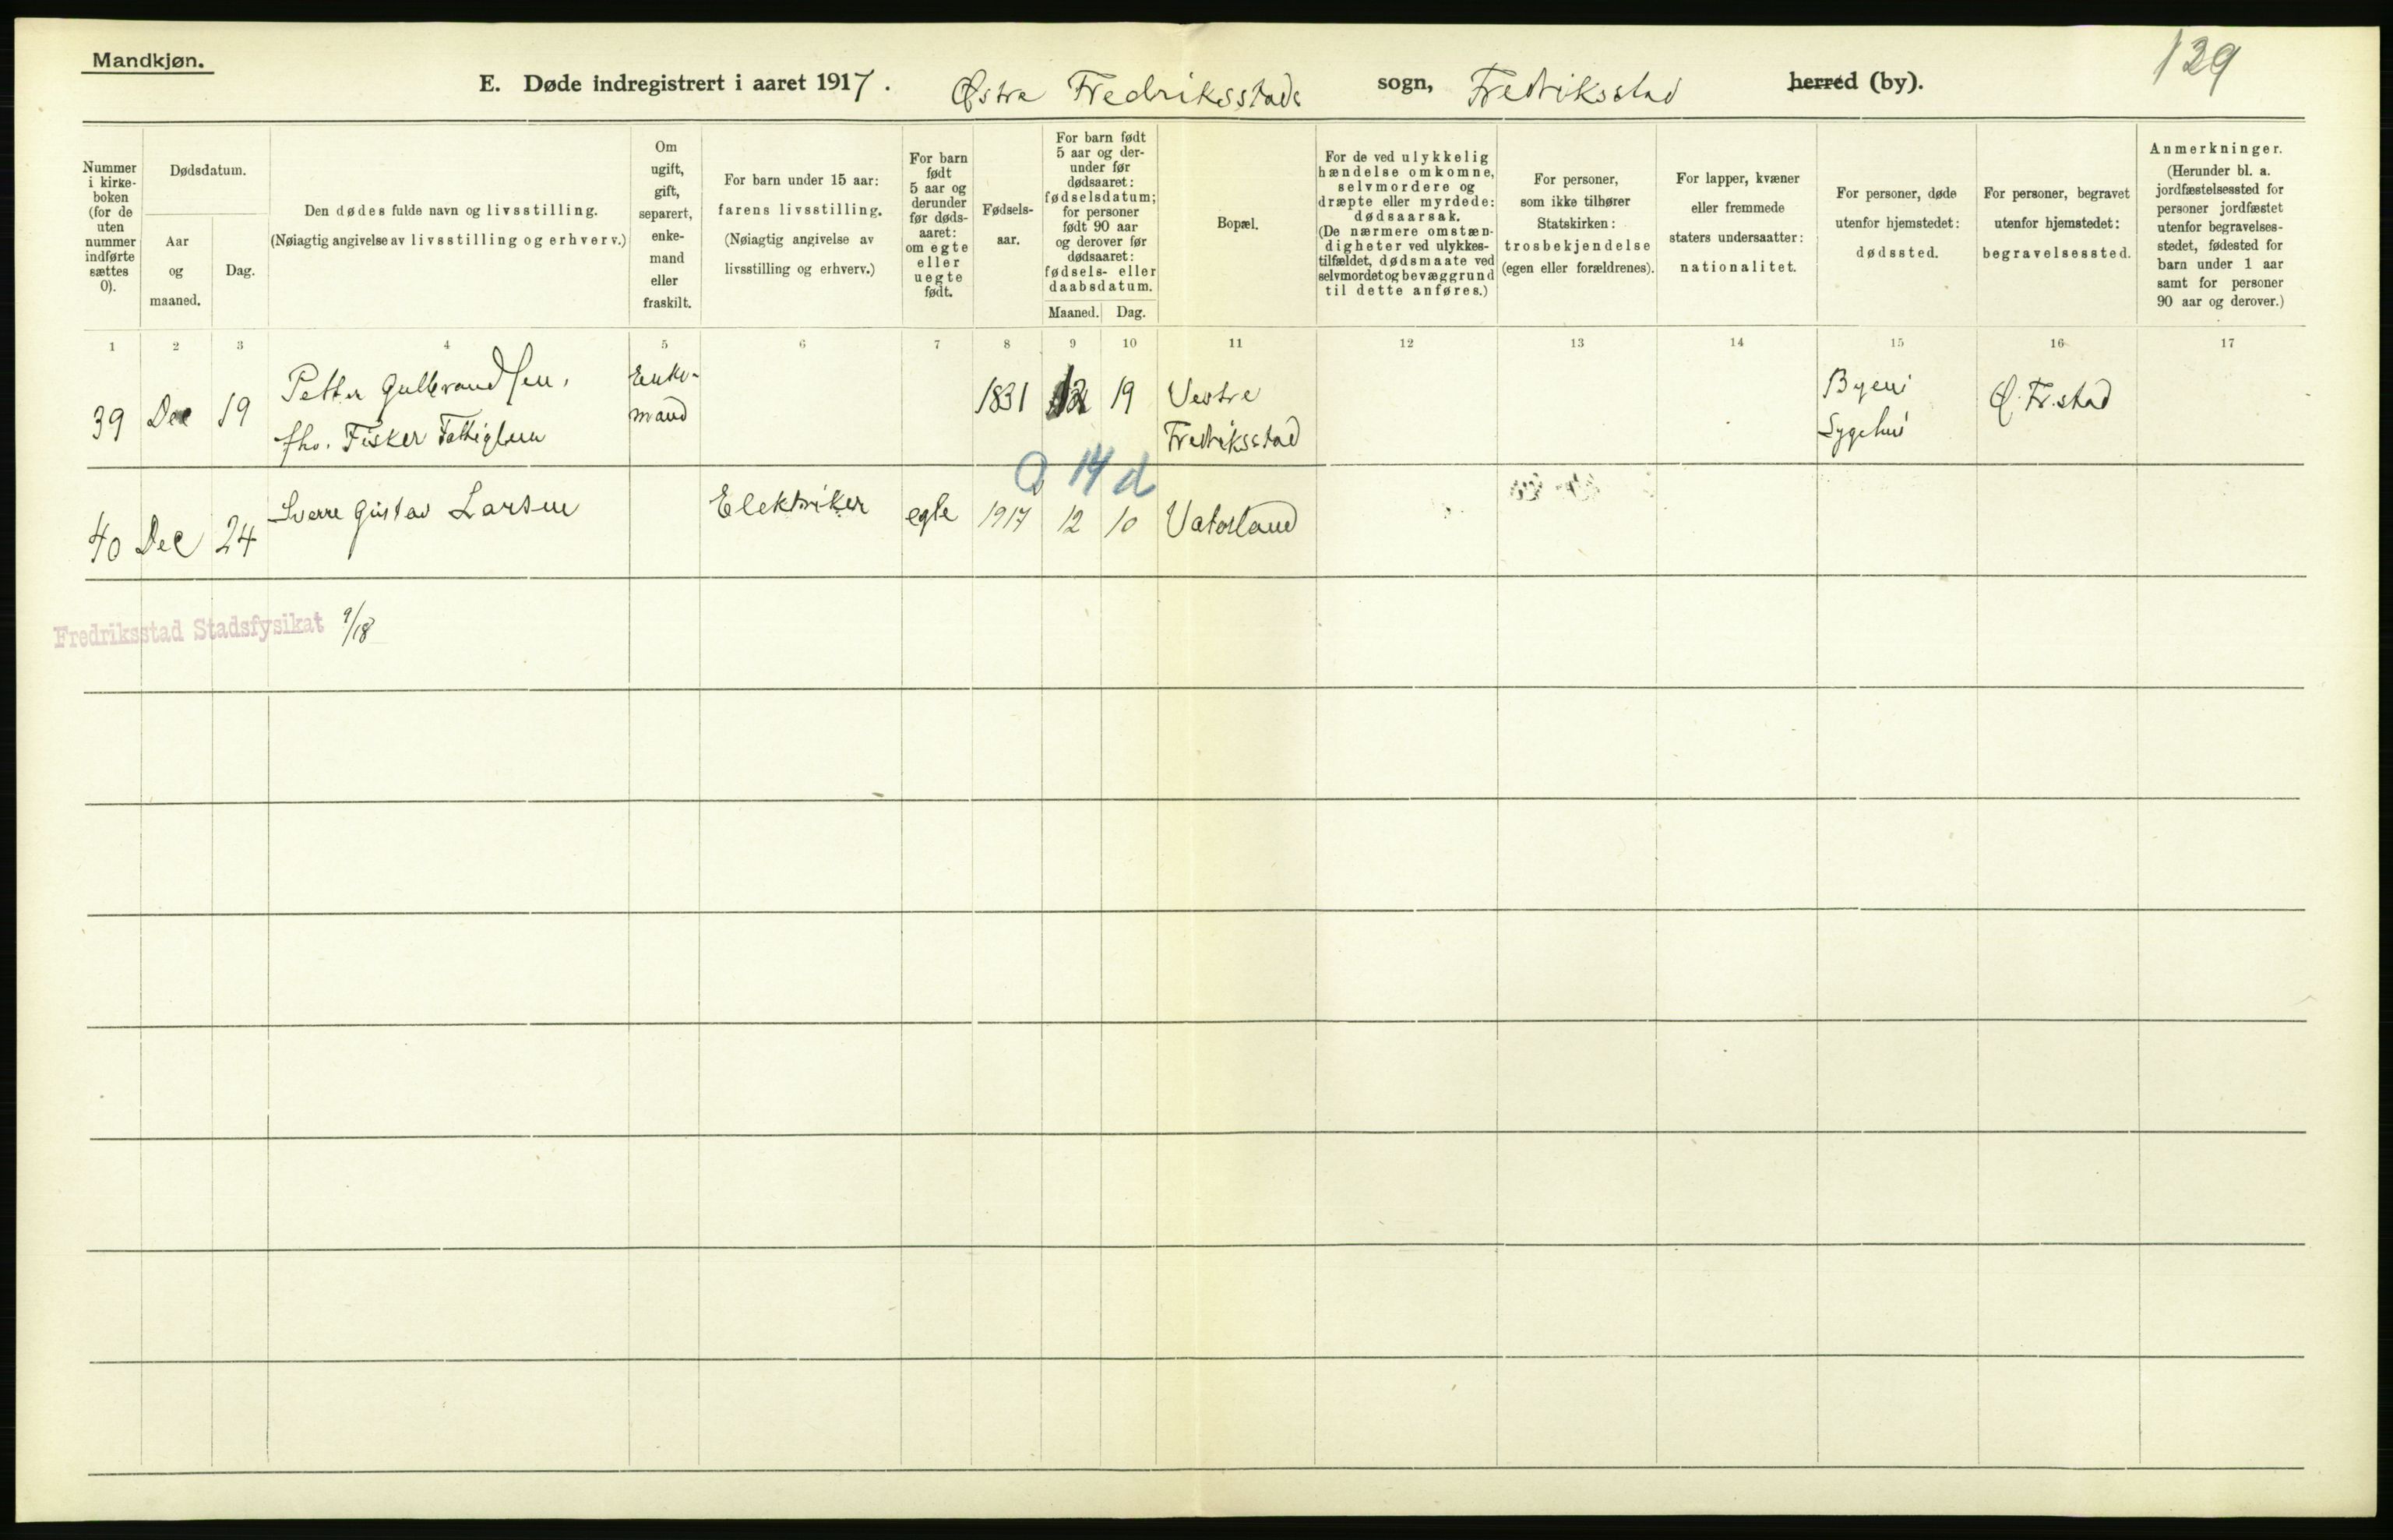 Mandkjøn.
129
E. Døde indregistrert i aaret 1917. Østre Fredriksstads sogn, Fredriksstad herred (by).
Nummer
i kirke-
boken
(for de
uten
nummer
indførte
sættes
0).
Dødsdatum.
Aar
og
maaned.
Dag.
Den dødes fulde navn og livsstilling.
(Nøiagtig angivelse av livsstilling og erhverv.)
Om
ugift,
gift,
separert,
enke-
mand
eller
fraskilt.
For barn under 15 aar:
farens livsstilling.
(Nøiagtig angivelse av
livsstilling og erhverv.)
For barn
født
5 aar og
derunder
før døds-
aaret:
om egte
eller
uegte
født.
Fødsels-
aar.
For barn født
5 aar og der-
under før
dødsaaret:
fødselsdatum;
for personer
født 90 aar
og derover før
dødsaaret:
fødsels- eller
daabsdatum.
Maaned. Dag.
Bopæl.
For de ved ulykkelig
hændelse omkomne,
selvmordere og
dræpte eller myrdede:
dødsaarsak.
(De nærmere omstæn-
digheter ved ulykkes-
tilfældet, dødsmaate ved
selvmordet og bevæggrund
til dette anføres.)
For personer,
som ikke tilhører
Statskirken:
trosbekjendelse
(egen eller forældrenes).
For lapper, kvæner
eller fremmede
staters undersaatter:
nationalitet.
For personer, døde
utenfor hjemstedet:
dødssted.
For personer, begravet
utenfor hjemstedet:
begravelsessted.
Anmerkninger.
(Herunder bl. a.
jordfæstelsessted for
personer jordfæstet
utenfor begravelses-
stedet, fødested for
barn under 1 aar
samt for personer
90 aar og derover.)
1 2 3 4 5 6 7 8 9 10 11 12 13 14 15 16 17
39 Dec 19 Petter Gulbrandsen,
fhv. Fisker Fattiglem
Enke-
mand
1831 12 19 Vestre
Fredriksstad
Byens
Sygehus
Ø. Fr.stad
0 14 d
40 Dec 24 Sverre Gustav Larsen Elektriker egte 1917 12 10 Vaterland
Fredriksstad Stadsfysikat 9/18